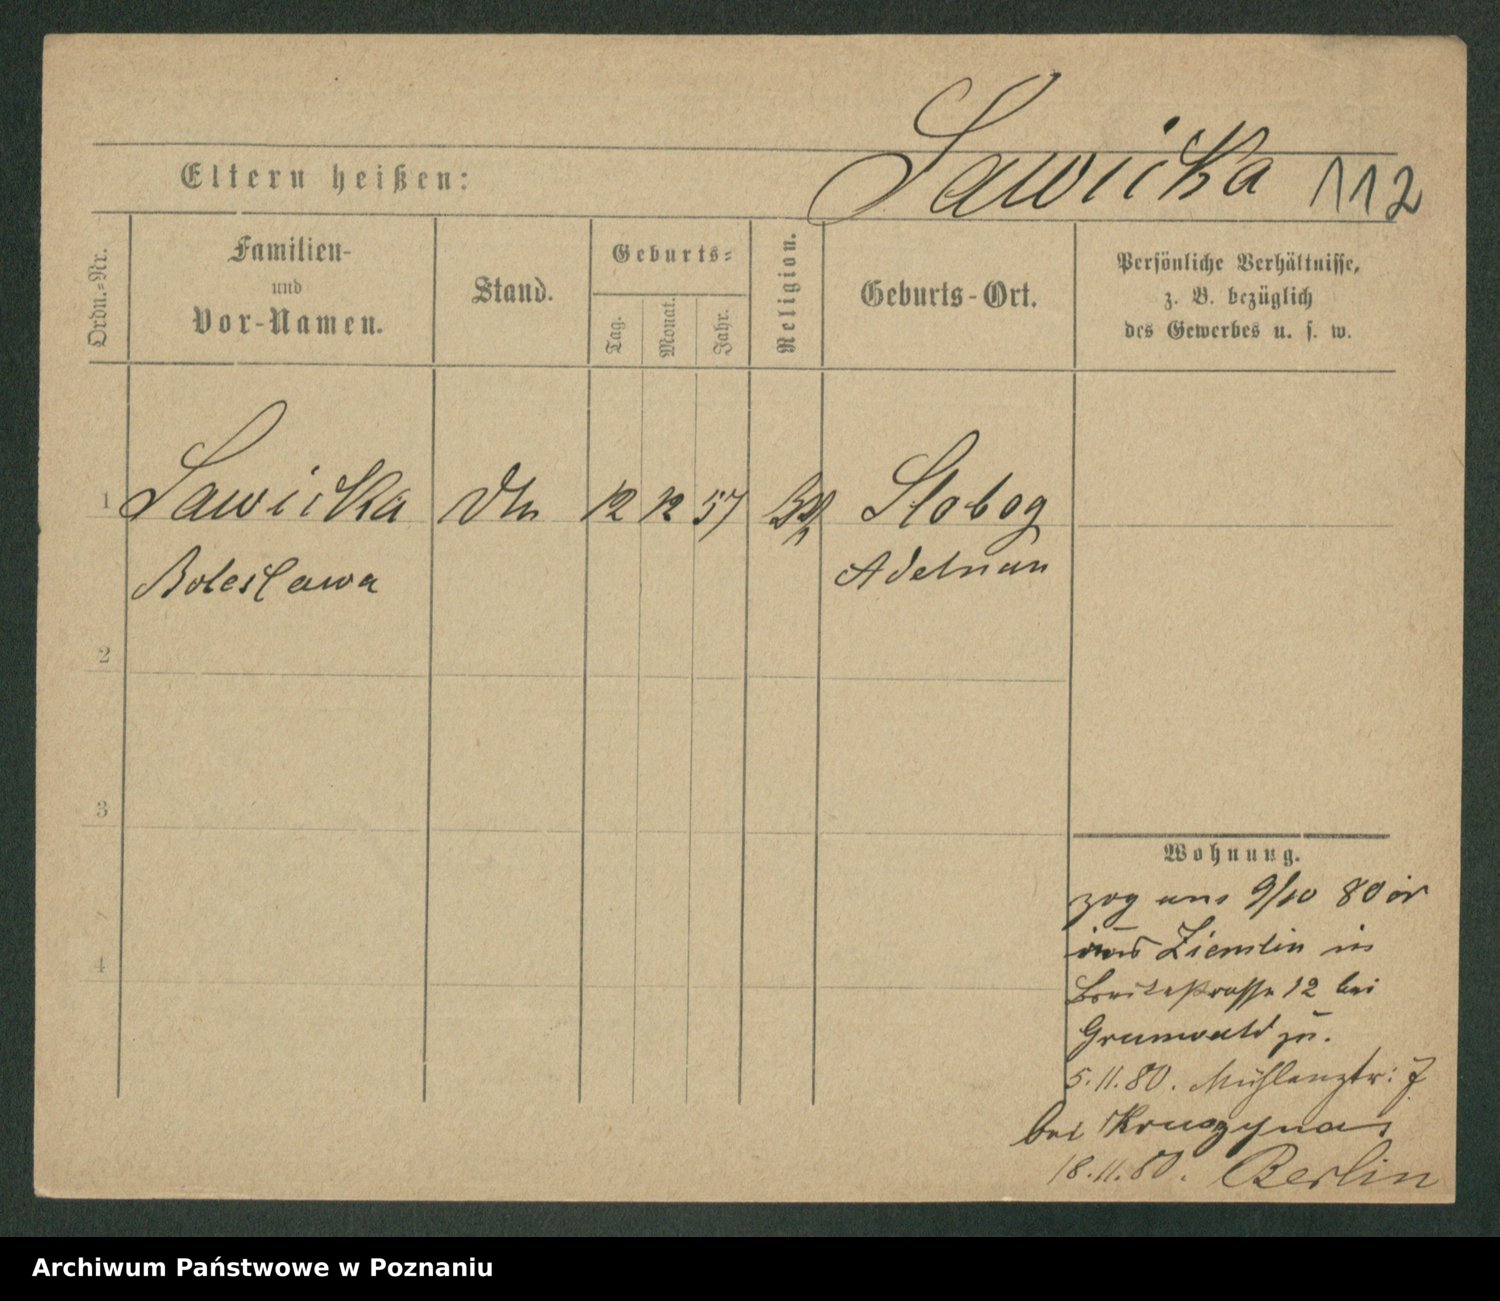 Sawicka 112
Eltern heißen:
Ordn.-Nr.
Familien-
und
Vor-Namen.
Stand.
Geburts-
Tag.
Monat.
Jahr.
Religion.
Geburts-Ort.
Persönliche Verhältnisse,
z. B. bezüglich
des Gewerbes u. s. w.
1 Sawicka 12 12 57 Slobog
Boleslawa Adelnau
2
3
4
Wohnung.
zog am 9/10 80
Ziemlin in
Breitestrasse 12 bei
Grunwald zu.
5.11.80. Mühlenstr: 7
bei
18.11.80. Berlin
Archiwum Państwowe w Poznaniu